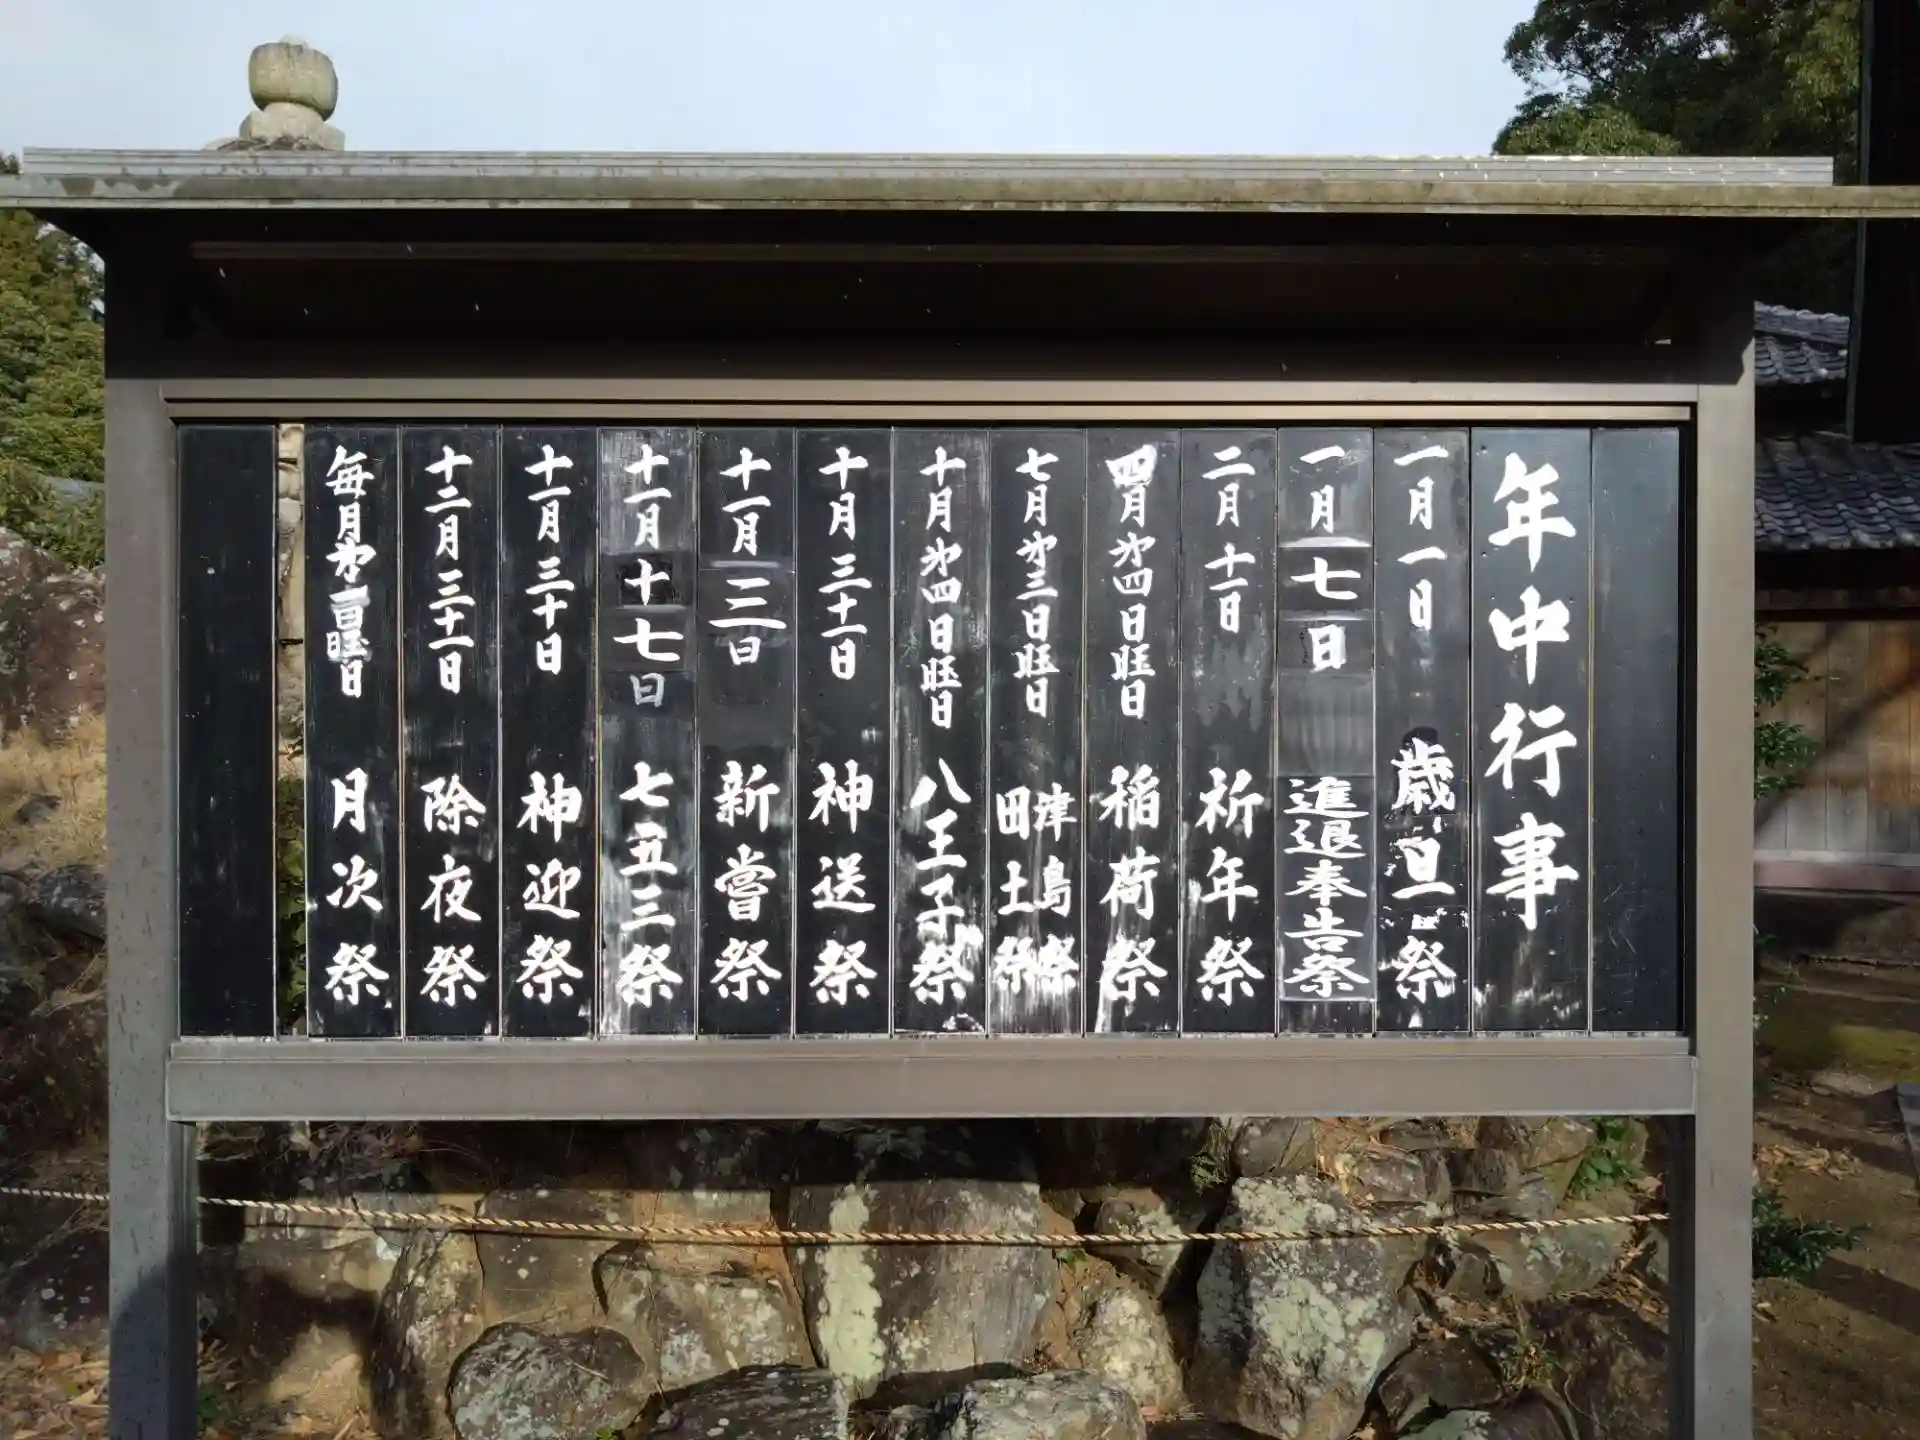 年中行事
一月一日 歳旦祭
一月七日 進退奉告祭
二月十一日 祈年祭
四月第四日曜日 稲荷祭
七月第三日曜日 津島祭 田土祭
十月第四日曜日 八王子祭
十月三十一日 神送祭
十一月三日 新嘗祭
十一月十七日 七五三祭
十一月三十日 神迎祭
十二月三十一日 除夜祭
毎月第一日曜日 月次祭